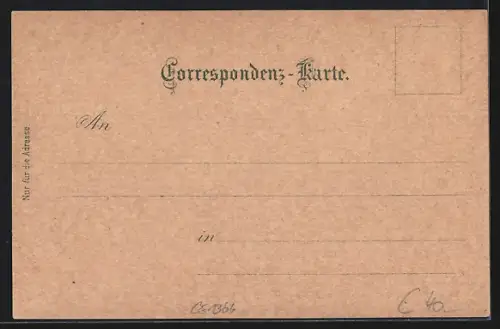 Correspondenz-Karte.
An
in
Nur für die Adresse
€ 40.-